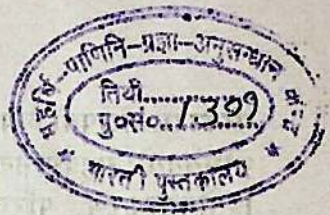 महर्षि-पाणिनि-प्रज्ञा-अनुसन्धान
तिथी..............
पु०सं०...1309...
* भारती पुस्तकालय *